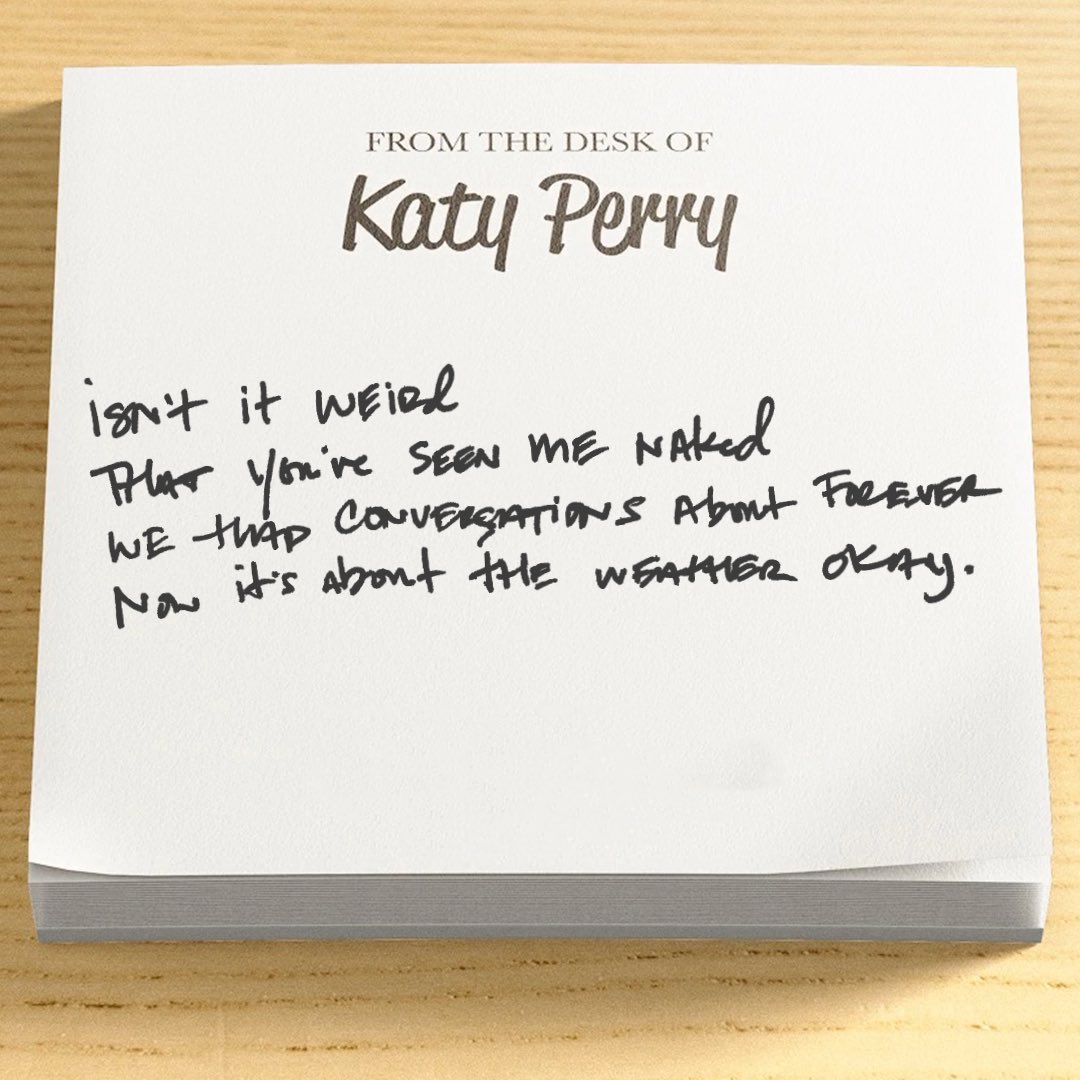 FROM THE DESK OF
Katy Perry
isn't it weird
that you've seen me naked
we had conversations about forever
now it's about the weather okay.